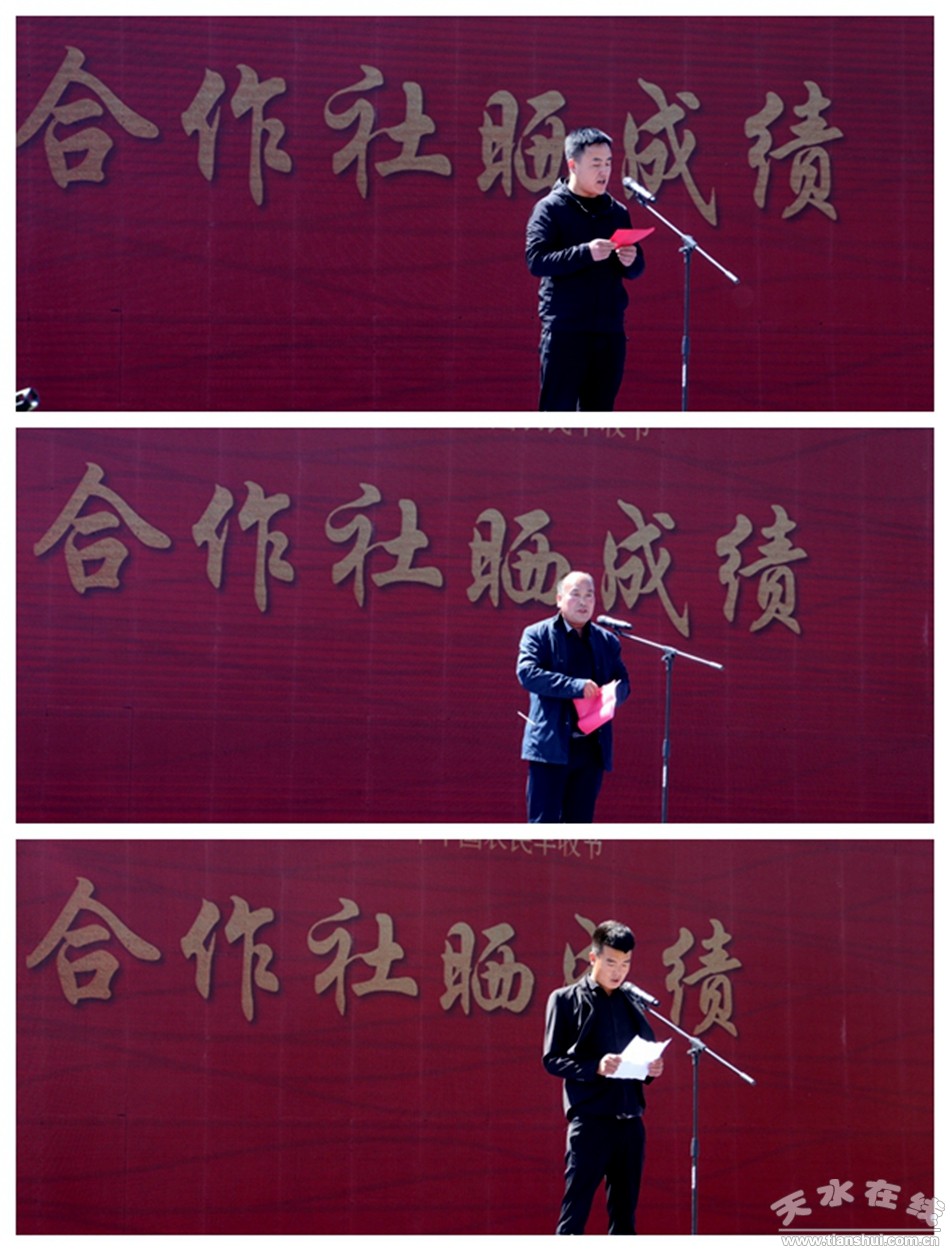 合作社晒成绩
农民丰收节
合作社晒成绩
中国农民丰收节
合作社晒成绩
天水在线
www.tianshui.com.cn